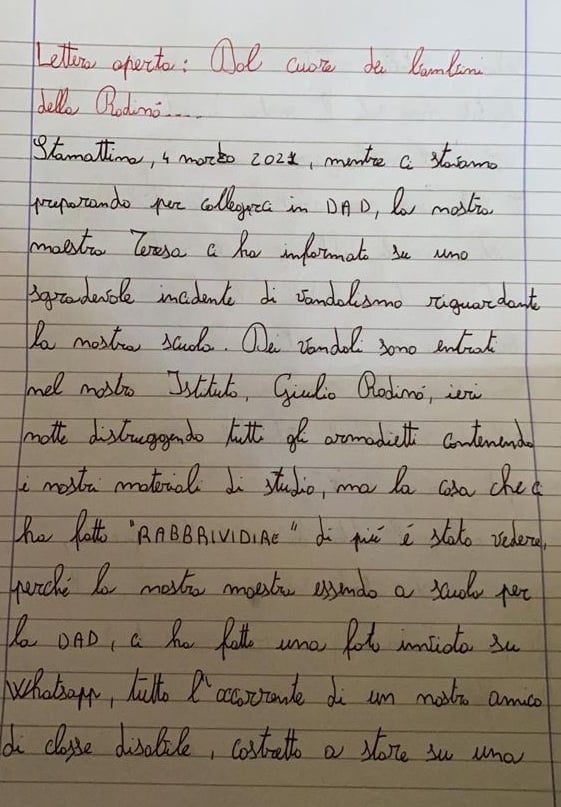 Lettera aperta: Dal cuore dei bambini
della Rodinó....
Stamattina, 4 marzo 2021, mentre ci stavamo
preparando per collegarci in DAD, la nostra
maestra Teresa ci ha informato su uno
sgradevole incidente di vandalismo riguardante
la nostra scuola. Dei vandali sono entrati
nel nostro Istituto, Giulio Rodinó, ieri
notte distruggendo tutti gli armadietti contenendo
i nostri materiali di studio, ma la cosa che ci
ha fatto "RABBRIVIDIRE" di piú é stato vedere,
perché la nostra maestra essendo a scuola per
la DAD, ci ha fatto una foto inviata su
Whatsapp, tutto l'occorrente di un nostro amico
di classe disabile, costretto a stare su una